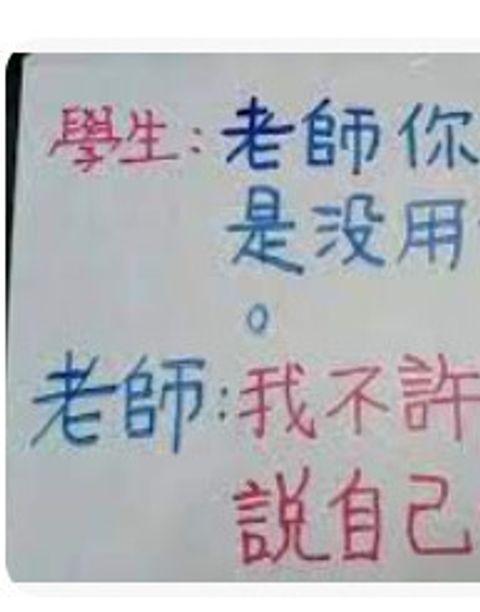 學生:老師你
是没用
。
老師:我不許
説自己